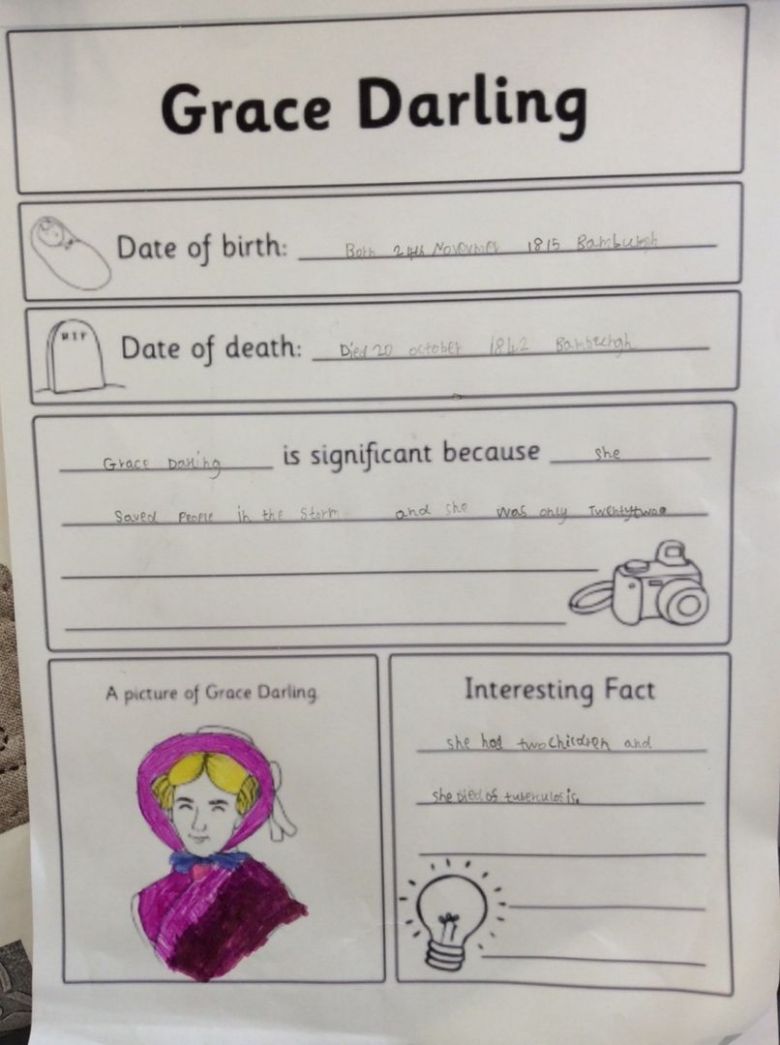 Grace Darling
Date of birth: Born 24th November 1815 Bamburgh
RIP
Date of death: Died 20 october 1842 Bamburgh
Grace Darling is significant because she
Saved People in the Storm and she was only Twentytwo
A picture of Grace Darling
Interesting Fact
she had two children and
she Died of tuberculosis.